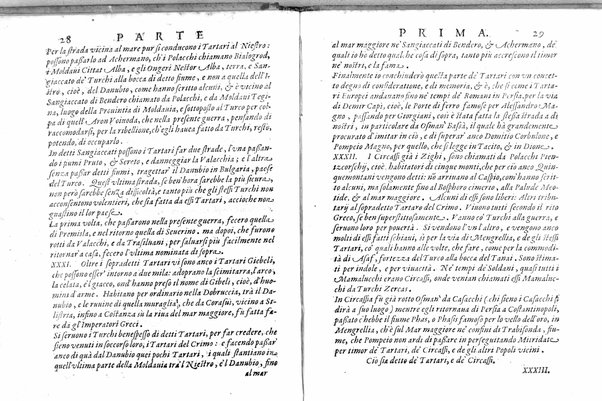 28 PARTE
Per la strada vicina al mare pur si conducono i Tartari al Niestro:
possono passarlo ad Achermano, ch'i Polacchi chiamano Bialogrod,
i Moldani Cittat Alba, e gli Ongeri Nestor Alba, terra, e San-
giaccato de' Turchi alla bocca di detto fiume, e non a quella dell'
Istro, cioè, del Danubio, come hanno scritto alcuni, & è vicino al
Sangiaccato di Bendero chiamato da Polacchi, e da Moldani Tegi-
na, luogo della Prouintia di Moldauia, e sottoposto a' Turchi per col
pa di quell' Aron Voiuoda, che nella presente guerra, pensando di
racomodarsi, per la ribellione, ch'egli hauea fatto da Turchi, restò,
potendo, di occuparlo.
In detti Sangiaccati possono i Tartari far due strade, l'vna passan-
do i fiumi Pruto, & Sereto, e danneggiar la Valacchia; e l'altra
senza passar detti fiumi, tragettar il Danubio in Bulgaria, paese
del Turco. Quest'vltima strada, se ben buona sarebbe la piu sicura,
non sarebbe senza difficoltà, e tanto più che gli stessi Turchi non
acconsentono volentieri, che sia fatta da essi Tartari, accioche non
guastino il lor paese.
La prima volta, che passarono nella presente guerra, fecero quella
di Premisla, e nel ritorno quella di Seuerino. ma dopoi, che furono
rotti da Valacchi, e da Trasiluani, per saluarsi piu facilmente nel
ritorno, fecero la vltima nominata di sopra.
XXXI. Oltre i sopradetti Tartari vi sono anco i Tartari Giebeli,
che possono esser' intorno a due mila: adoprano la scimitarra, l'arco,
la celata, e'l giacco, ond'hanno preso il nome di Gibeli, cioè, d'huo-
mini d'arme. Habitano per ordinario nella Dobruccia, tra il Da-
nubio, e le ruine di quella muraglia, che da Corasui, vicino a Si-
listria, infino a Costanza sù la riua del mar maggiore, fu fatta fa-
re da gl'Imperatori Greci.
Si seruono i Turchi bene spesso di detti Tartari, per far credere, che
sieno venuti in soccorso loro, i Tartari del Crimo: e facendo passar
anco di quà dal Danubio quei pochi Tartari, i quali stantiano in
quell'vltima parte della Moldauia tra'l Niestro, e'l Danubio, fino
al mar
PRIMA. 29
al mar maggiore ne' Sangiaccati di Bendero, & Achermano, de'
quali io ho detto qual che cosa di sopra, tanto più accrescono il timor
ne' nostri, e la fama.
Finalmente io conchiuderò questa parte de' Tartari con vn concet-
to degno di consideratione, e di memoria, & è, che sì come i Tarta-
ri Europei andauano sin ne' tempi de' Romani in Persia, per la via
di Demir Capi, cioè, le Porte di ferro famose per Alessandro Ma-
gno, passando per Giorgiani, così è stata fatta la stessa strada a di
nostri, in particolare da Osman' Bassà, il quale ha grandemente
procurato d'imitar in ciò, e di superar anco Domitio Corbulone, e
Pompeio Magno, per quello, che si legge in Tacito, & in Dione.
XXXII. I Circassi già i Zeghi, sono chiamati da Polacchi Pien-
tzcorschij, cioè habitatori di cinque monti, che per ciò anco Quin-
quemontani vengono detti: nò arriuano al Caspio, come hanno scrit-
to alcuni, ma solamente fino al Bosphoro cimerio, alla Palude Meo-
tide, & al mar maggiore. Alcuni di essi sono liberi: Altri tribu-
tarij al sopradetto Tartaro del Crimo. Viuono tutti secondo il rito
Greco, se ben superstitiosamente. Vanno co' Turchi alla guerra, e
seruono loro per pouertà. Si vendono l'vn l'altro, e vengono anco
di essi fatti schiaui, sì per la via di Mengrellia, e da gli stessi
Tartari, co' quali hanno alle volte, che fare, come per la commodi-
tà di Asaf, fortezza del Turco alla bocca del Tanai. Sono stima-
ti per indole, e per viuacità. Ne' tempi de' Soldani, quasi tutti i
Mamalucchi erano Circassi, onde vengono chiamati essi Mamaluc-
chi da Turchi Zercas.
In Circassia fu già rotto Osman' da Casacchi (chi sieno i Casacchi si
dirà a suo luogo) mentre egli ritornaua di Persia a Costantinopoli,
passato c'hebbe il fiume Phat, o Phasi famoso per lo vello d'oro, in
Mengrellia, ch'è sul Mar maggiore ne' confini di Trabisonda, fiu-
me, che Pompeio non ardì di passare in perseguitando Mitridate
per timor de' Tartari, de' Circassi, e de gli altri Popoli vicini.
Ciò sia detto de' Tartari, e de' Circassi.
XXXIII.